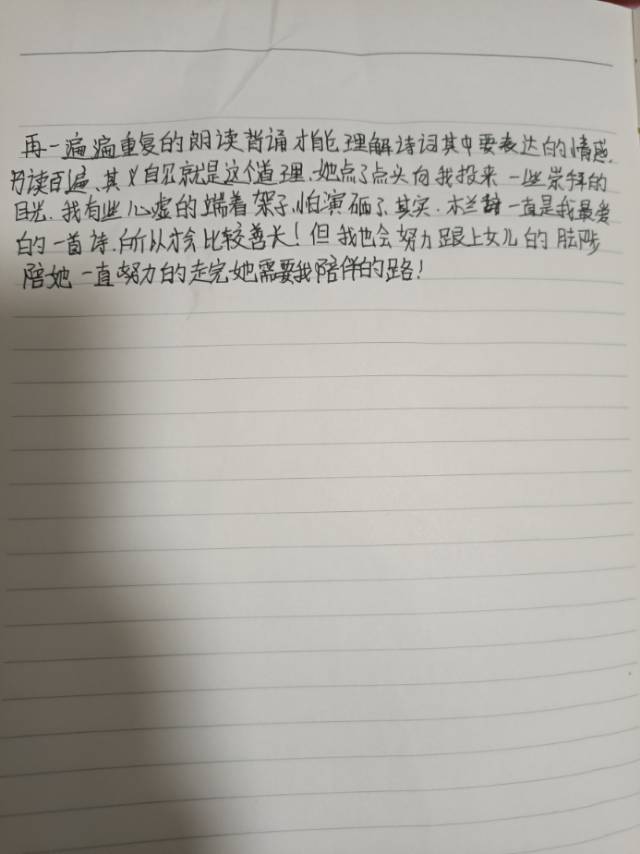 再一遍遍重复的朗读背诵才能理解诗词其中要表达的情感.
书读百遍、其义自见就是这个道理.她点了点头向我投来一些崇拜的
目光.我有些心虚的端着架子,怕演砸了.其实.木兰辞一直是我最爱
的一首诗.所以才会比较善长!但我也会努力跟上女儿的脚步
陪她一直努力的走完她需要我陪伴的路!